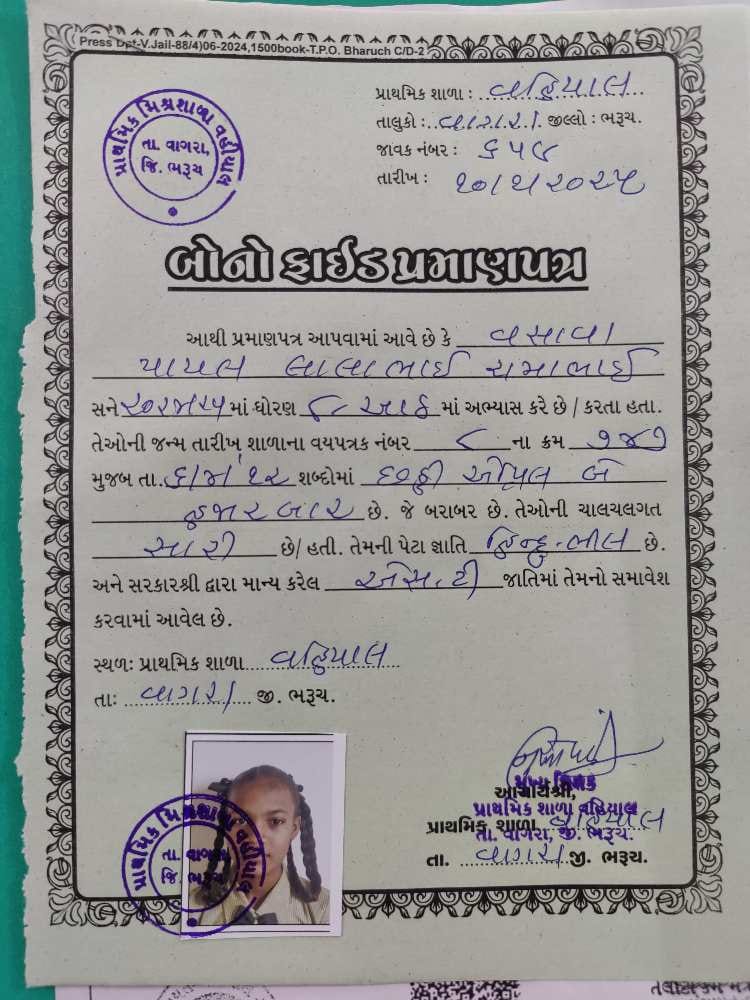 Press Dpt-V.Jail-88/4)06-2024,1500book-T.P.O. Bharuch C/D-2
પ્રાથમિક શાળા : વહિયાલ
તાલુકો : વાગરા જીલ્લો : ભરૂચ.
જાવક નંબર : ૬૫૪
તારીખ : ૨૦૨૫
પ્રાથમિક મિશ્રશાળા વહીયાલ
તા. વાગરા,
જિ. ભરૂચ
બોનોફાઈડ પ્રમાણપત્ર
આથી પ્રમાણપત્ર આપવામાં આવે છે કે વસાવા
પાયલ લાલાભાઈ રામાભાઈ
સને માં ધોરણ ૮ - આઠ માં અભ્યાસ કરે છે / કરતા હતા.
તેઓની જન્મ તારીખ શાળાના વયપત્રક નંબર ૮ ના ક્રમ ૧૪૭
મુજબ તા. શબ્દોમાં એપ્રિલ બે
હજાર બાર છે. જે બરાબર છે. તેઓની ચાલચલગત
સારી છે/ હતી. તેમની પેટા જ્ઞાતિ હિન્દુ-ભીલ છે.
અને સરકારશ્રી દ્વારા માન્ય કરેલ એસ.ટી જાતિમાં તેમનો સમાવેશ
કરવામાં આવેલ છે.
સ્થળઃ પ્રાથમિક શાળા વહિયાલ
તાઃ વાગરા જી. ભરૂચ.
મુખ્ય શિક્ષક
આચાર્યશ્રી,
પ્રાથમિક શાળા વહિયાલ
પ્રાથમિક શાળા વહિયાલ
તા. વાગરા, જી. ભરૂચ.
તા. વાગરા જી. ભરૂચ.
પ્રાથમિક મિશ્રશાળા વહીયાલ
તા. વાગરા
જિ. ભરૂચ